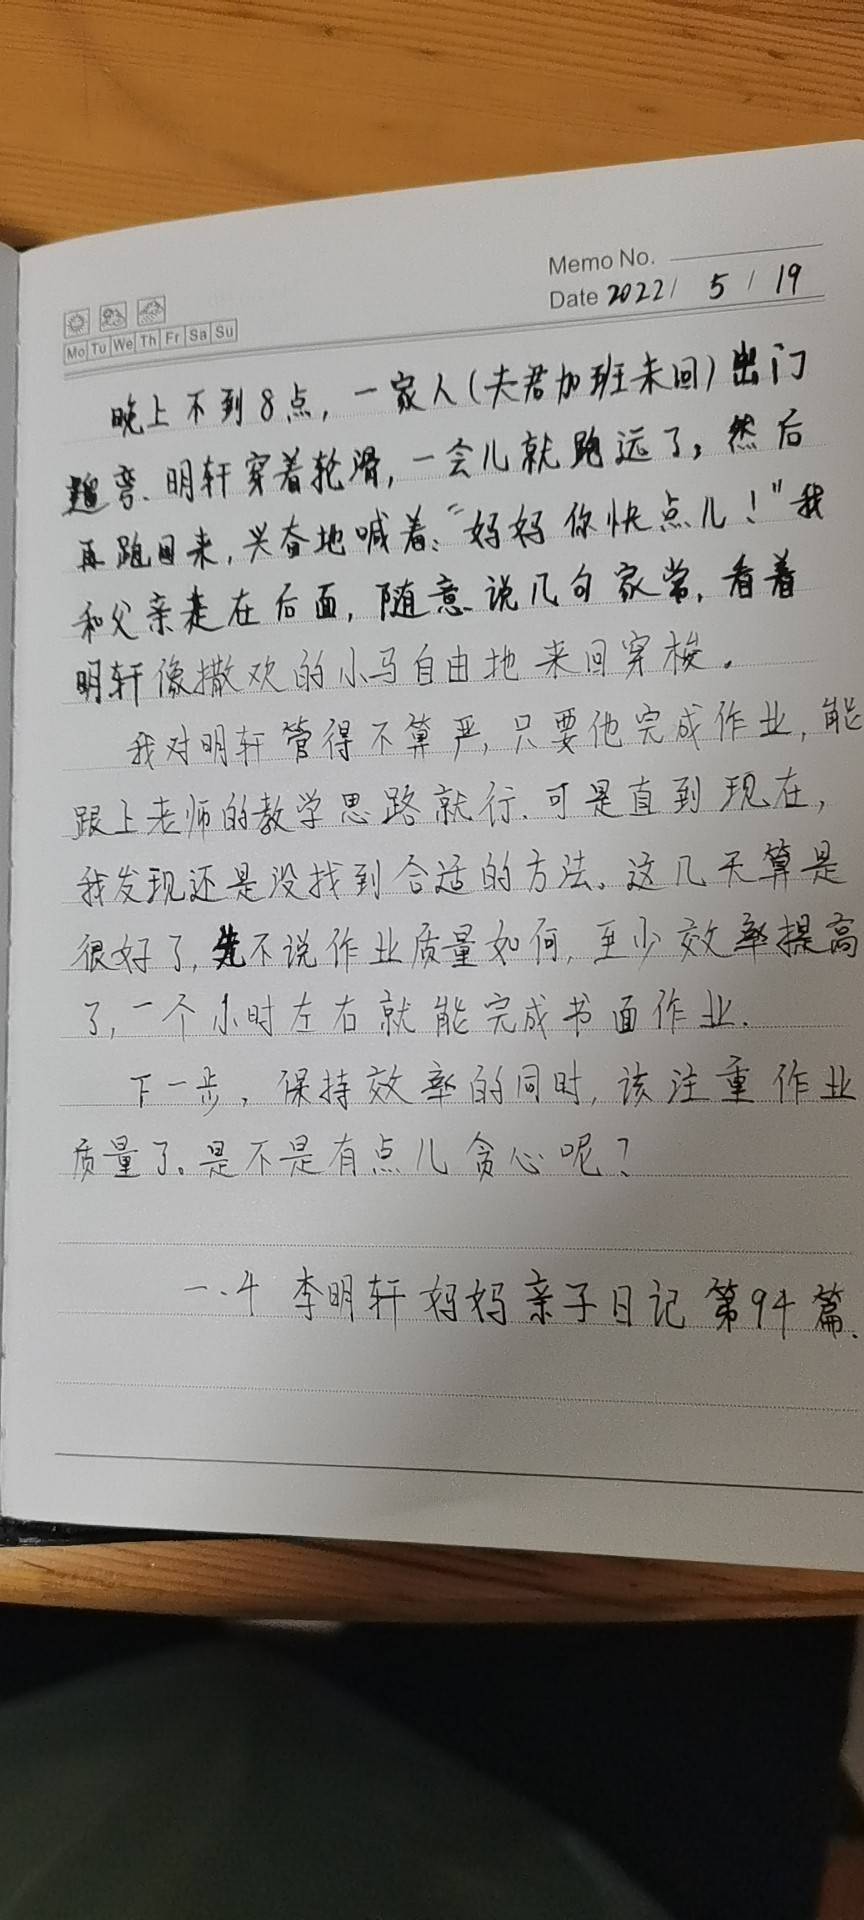 Memo No.
Date 2022/ 5 / 19
Mo Tu We Th Fr Sa Su
晚上不到8点，一家人(夫君加班未回)出门
遛弯.明轩穿着轮滑,一会儿就跑远了，然后
再跑回来,兴奋地喊着:“妈妈你快点儿！”我
和父亲走在后面,随意说几句家常,看着
明轩像撒欢的小马自由地来回穿梭。
我对明轩管得不算严,只要他完成作业,能
跟上老师的教学思路就行.可是直到现在,
我发现还是没找到合适的方法。这几天算是
很好了,先不说作业质量如何,至少效率提高
了,一个小时左右就能完成书面作业.
下一步,保持效率的同时,该注重作业
质量了。是不是有点儿贪心呢?
一.4 李明轩妈妈亲子日记第94篇.